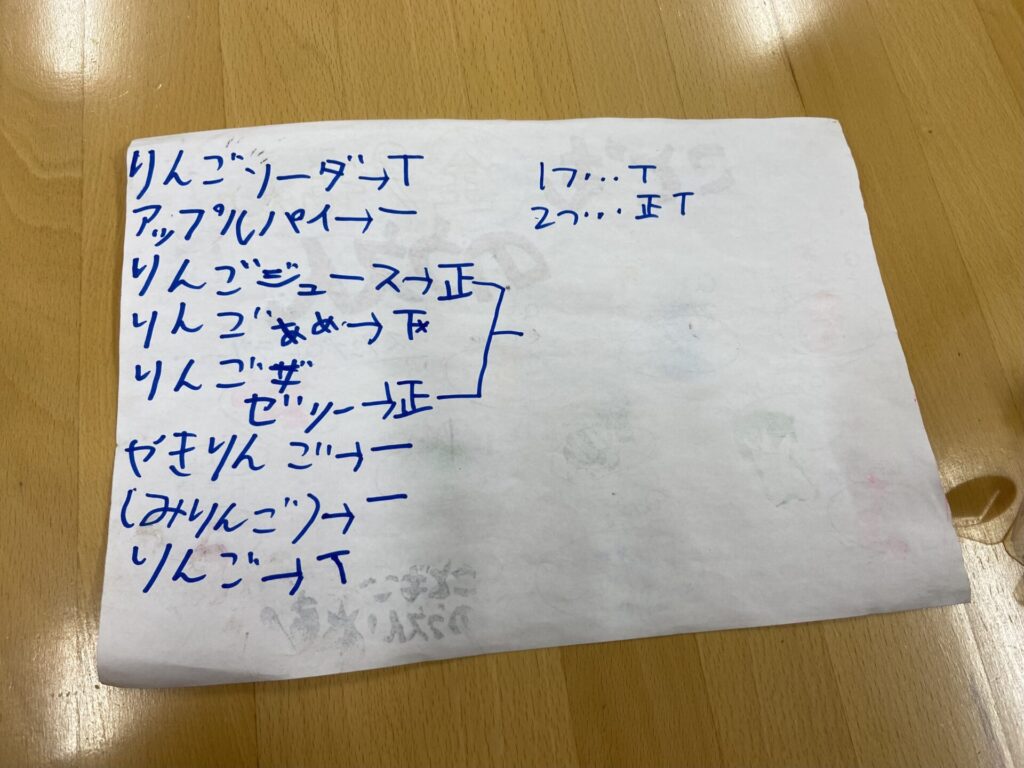 りんごソーダ→T
アップルパイ→一
りんごジュース→正
りんごあめ→下
りんご
ゼリー→正
やきりんご→一
(みりんご)→一
りんご→T
1つ…T
2つ…正T